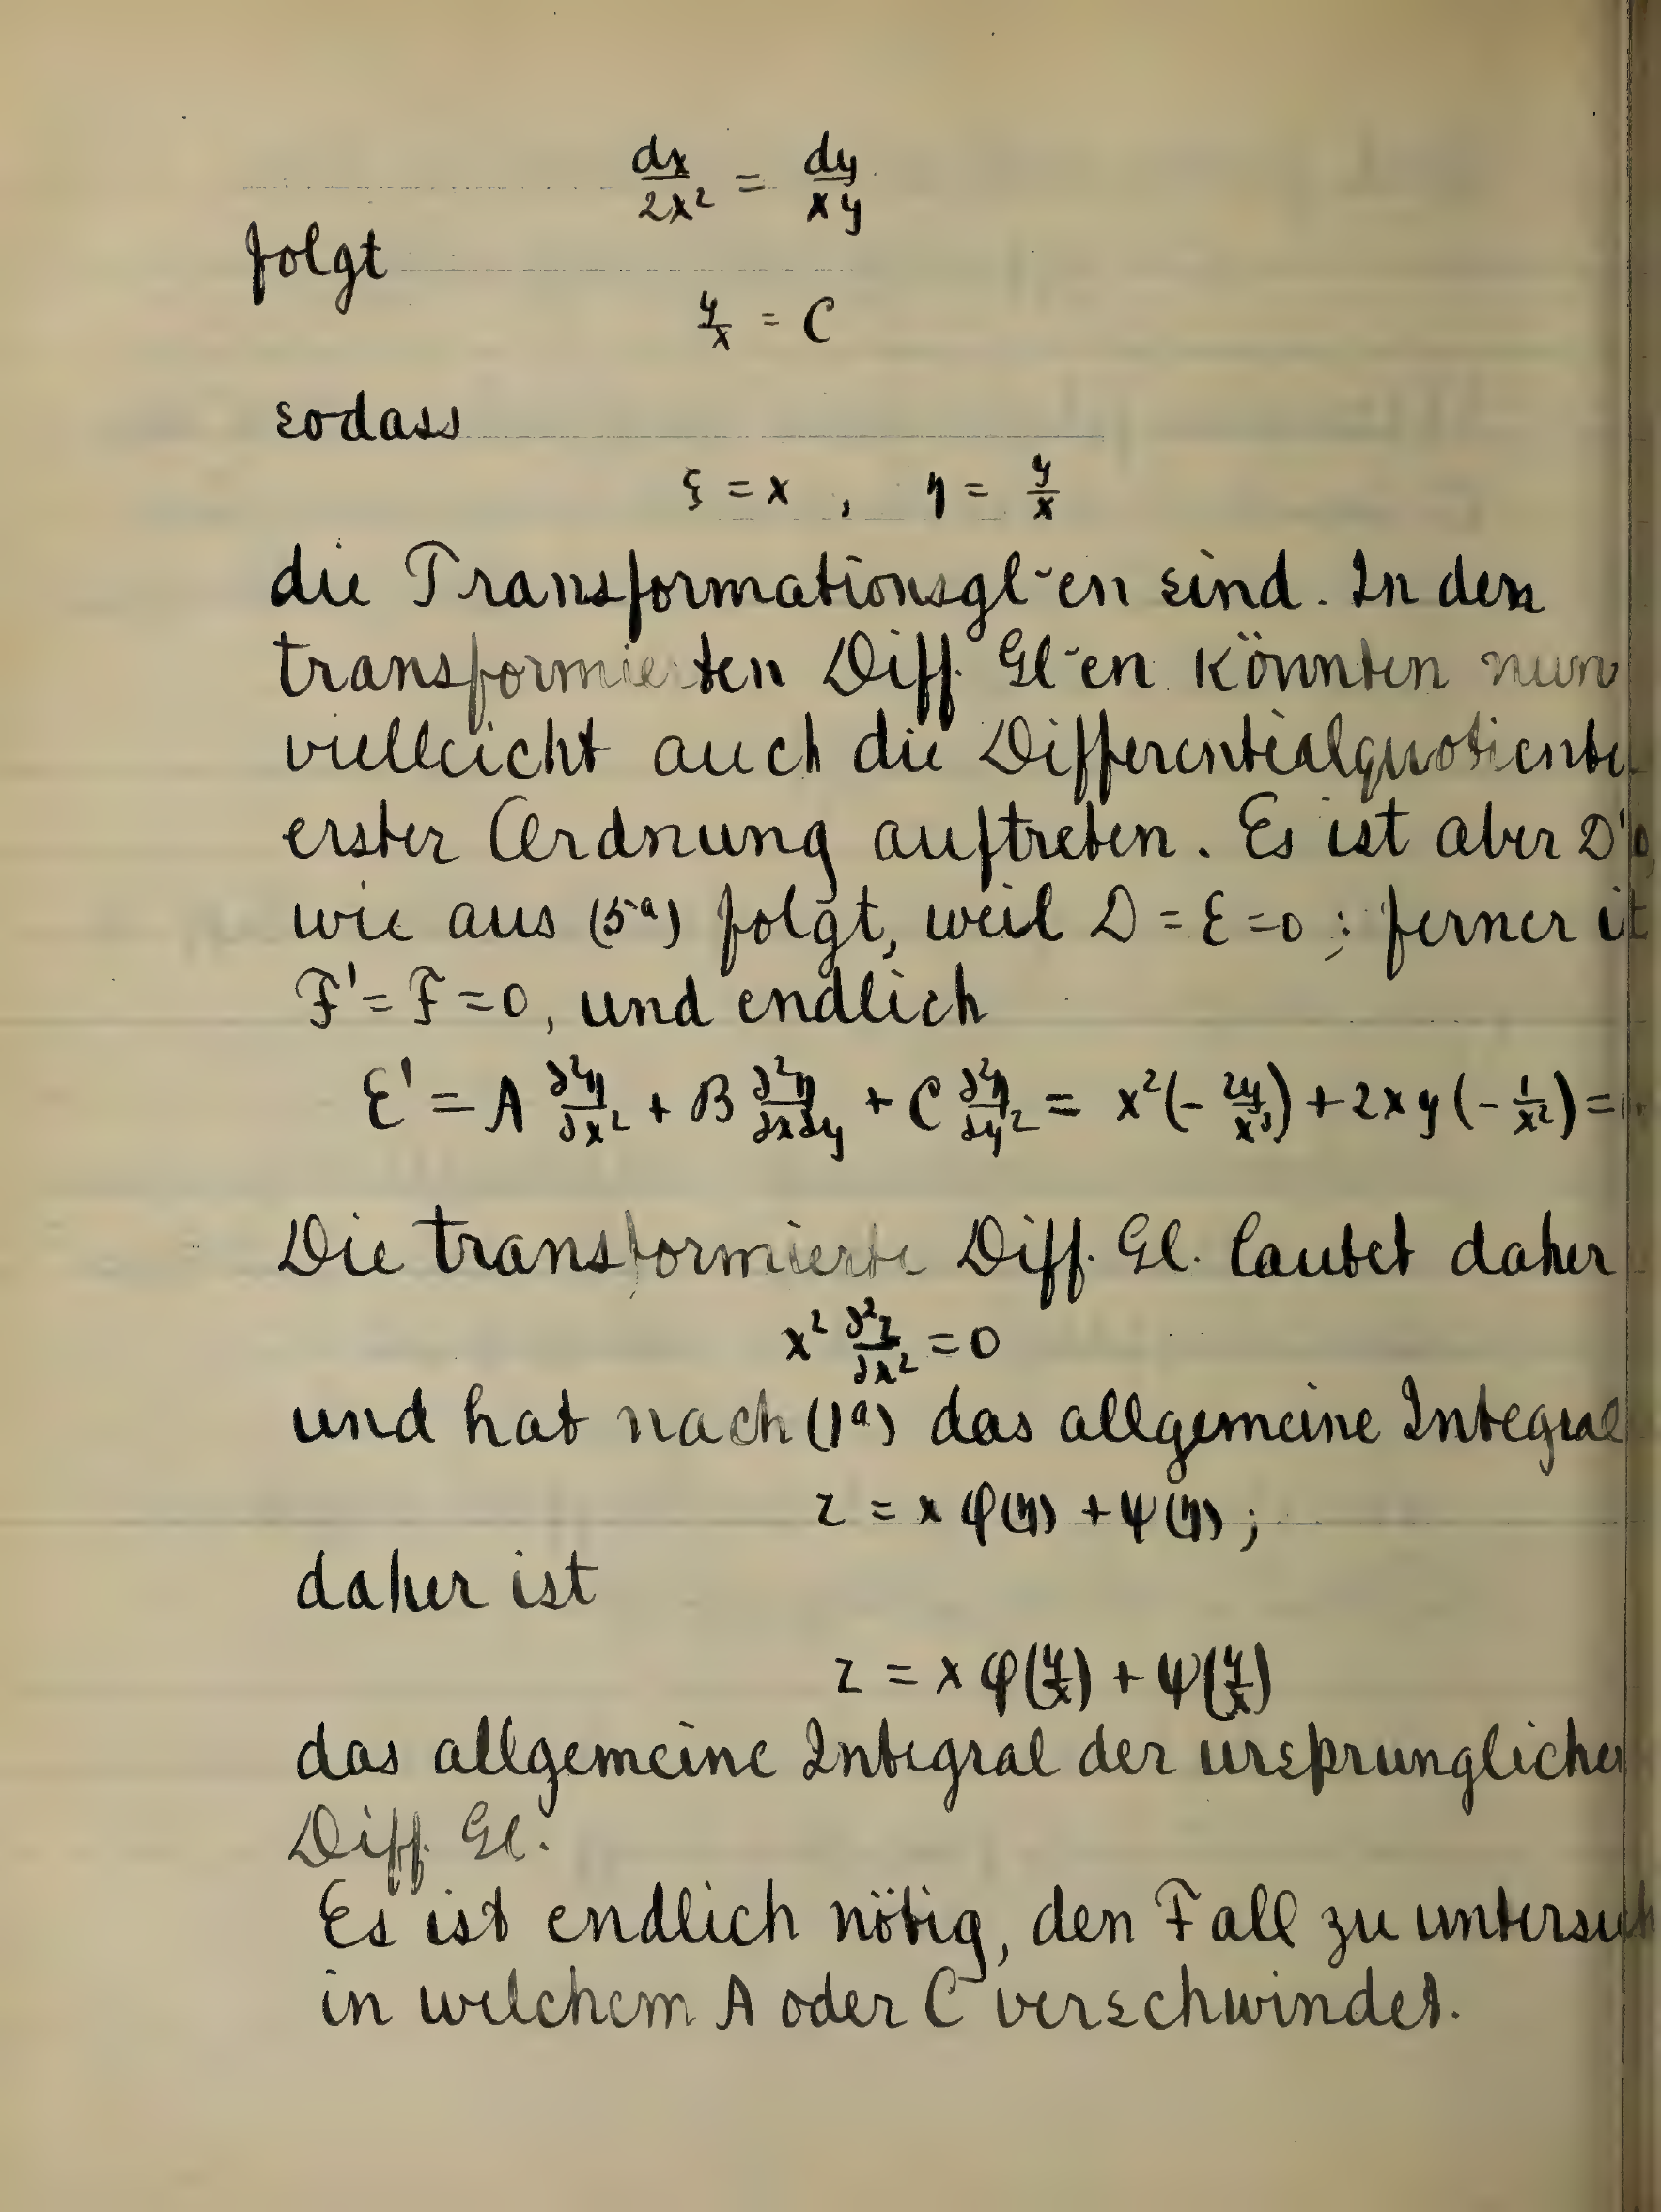 dx/2x² = dy/xy
folgt
y/x = C
sodass
ξ = x , η = y/x
die Transformationsgl-en sind. In den
transformierten Diff. Gl-en könnten nun
vielleicht auch die Differentialquotiente
erster Ordnung auftreten. Es ist aber D'
wie aus (5ᵃ) folgt, weil D = E = 0 ; ferner
F' = F = 0, und endlich
E' = A ∂²η/∂x² + B ∂²η/∂x∂y + C ∂²η/∂y² = x²(- 2y/x³) + 2xy(- 1/x²) =
Die transformierte Diff. Gl. lautet daher
x² ∂²z/∂x² = 0
und hat nach (1ᵃ) das allgemeine Integral
z = x φ(η) + ψ(η) ;
daher ist
z = x φ(y/x) + ψ(y/x)
das allgemeine Integral der ursprunglichen
Diff. Gl.
Es ist endlich nötig, den Fall zu untersuch
in welchem A oder C verschwindet.